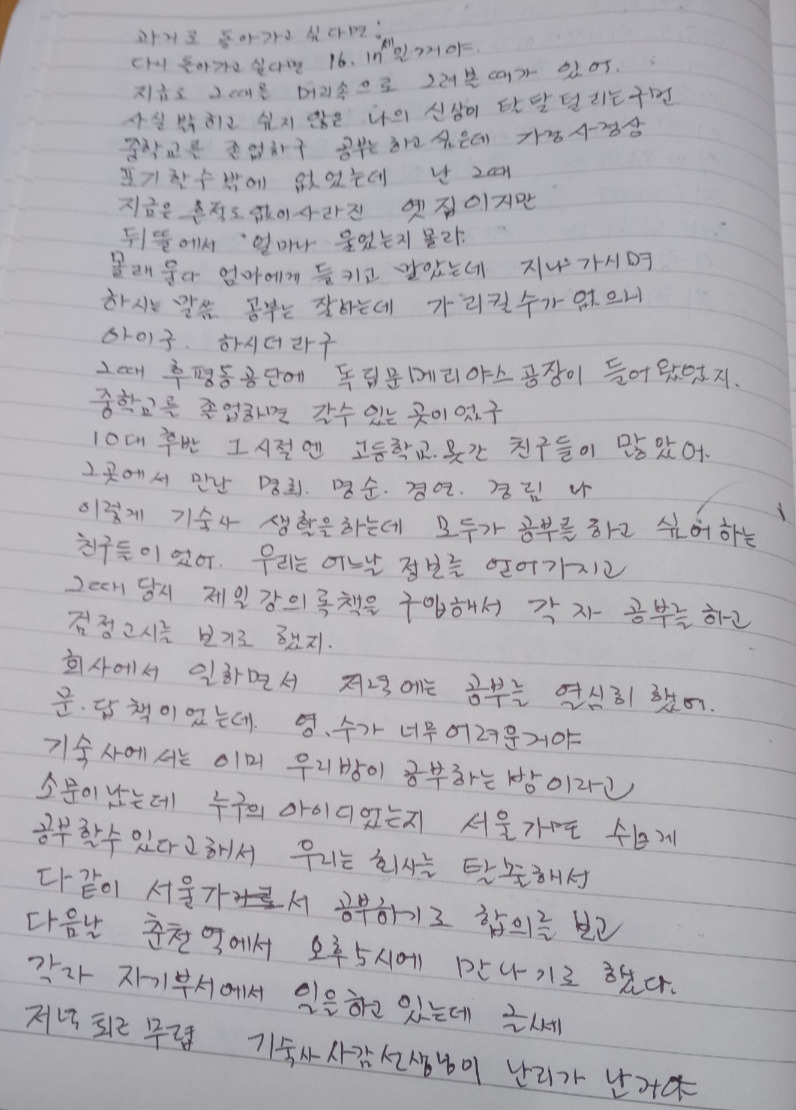 과거로 돌아가고 싶다면:
다시 돌아가고 싶다면 16. 17세일거야.
지금도 그때를 머리속으로 그려본 때가 있어.
사실 밝히고 싶지 않은 나의 신상이 탄탈털리는구먼
중학교를 졸업하구 공부는 하고 싶은데 가정사정상
포기할수 밖에 없었는데 난 그때
지금은 흔적도 없이 사라진 옛집이지만
뒤뜰에서 얼마나 울었는지 몰라.
몰래 울다 엄마에게 들키고 말았는데 지나가시며
하시는 말씀 공부는 잘하는데 가리킬 수가 없으니
아이구. 하시더라구
그때 후평동공단에 독립문메리야스 공장이 들어왔었지.
중학교를 졸업하면 갈수 있는 곳이었구
10대 후반 그시절엔 고등학교 못간 친구들이 많았어.
그곳에서 만난 명희. 명순. 경연. 경림 나
이렇게 기숙사 생활을하는데 모두가 공부를 하고 싶어하는
친구들이었어. 우리는 어느날 정보를 얻어가지고
그때 당시 제일강의록책을 구입해서 각자 공부를 하고
검정고시를 보기로 했지.
회사에서 일하면서 저녁에는 공부를 열심히 했어.
문.답책이었는데. 영.수가 너무어려운거야
기숙사에서는 이미 우리방이 공부하는방이라고
소문이났는데 누구의 아이디었는지 서울가면 쉽게
공부할수있다고해서 우리는 회사를 탈출해서
다같이 서울가서 공부하기로 합의를 보고
다음날 춘천역에서 오후5시에 만나기로 했다.
각자 자기부서에서 일을하고 있는데 글쎄
저녁 퇴근무렵 기숙사사감선생님이 난리가 난거야